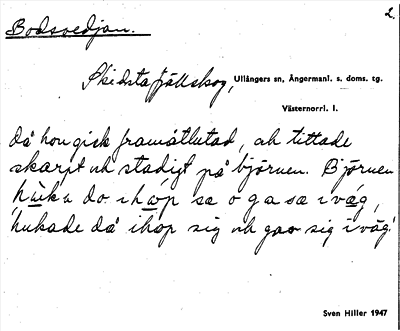 2.
Bodsvedjan.
Skidsta fjällskog, Ullångers sn, Ångermanl. s. doms. tg.
Västernorrl. l.
då hon gick framåtlutad, och tittade
skarpt och stadigt på björnen. Björnen
hùka do ihóp sæ o ga sæ ivæg,
'hukade då ihop sig och gav sig iväg'.
Sven Hiller 1947